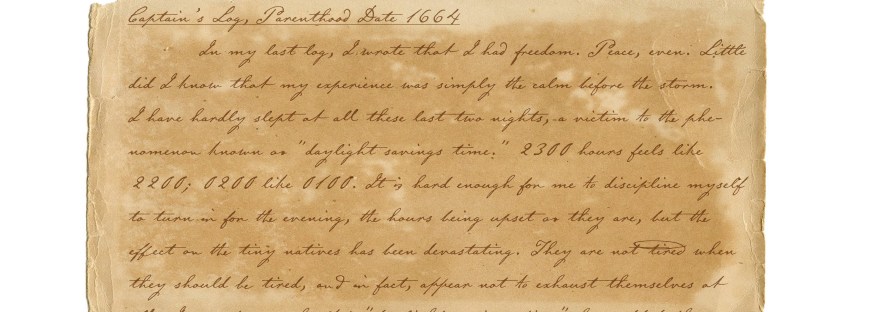 Captain's Log, Parenthood Date 1664
In my last log, I wrote that I had freedom. Peace, even. Little
did I know that my experience was simply the calm before the storm.
I have hardly slept at all these last two nights, a victim to the phe-
nomenon known as "daylight savings time." 2300 hours feels like
2200; 0200 like 0100. It is hard enough for me to discipline myself
to turn in for the evening, the hours being upset as they are, but the
effect on the tiny natives has been devastating. They are not tired when
they should be tired, and in fact, appear not to exhaust themselves at